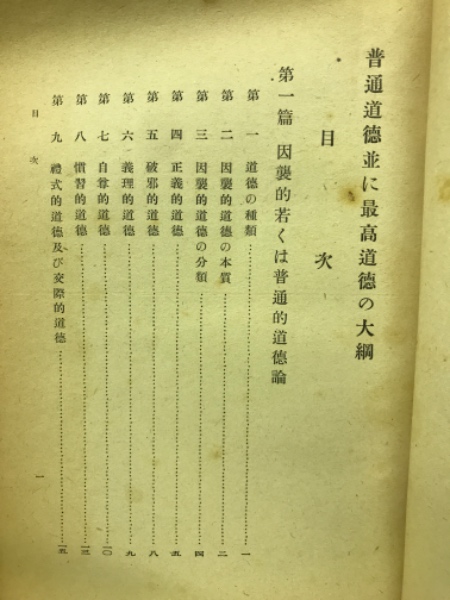 普通道德並に最高道德の大綱
目次
第一篇 因襲的若くは普通的道德論
第一 道德の種類……一
第二 因襲的道德の本質……二
第三 因襲的道德の分類……四
第四 正義的道德……五
第五 破邪的道德……八
第六 義理的道德……九
第七 自尊的道德……一〇
第八 慣習的道德……一三
第九 禮式的道德及び交際的道德……一五
目次
一